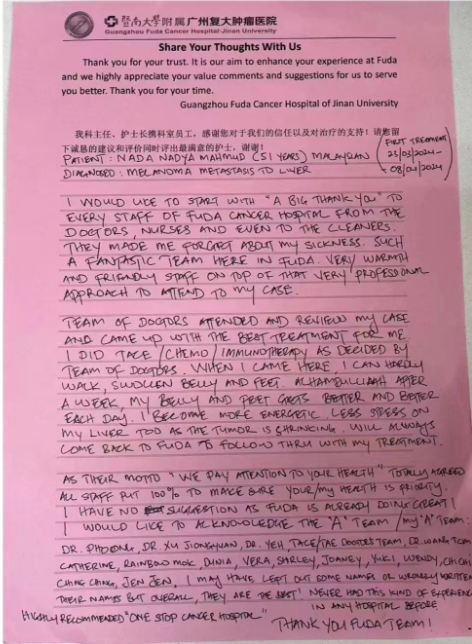 暨南大学附属广州复大肿瘤医院
Guangzhou Fuda Cancer Hospital·Jinan University
Share Your Thoughts With Us
Thank you for your trust. It is our aim to enhance your experience at Fuda
and we highly appreciate your value comments and suggestions for us to serve
you better. Thank you for your time.
Guangzhou Fuda Cancer Hospital of Jinan University
我科主任、护士长携科室员工，感谢您对于我们的信任以及对治疗的支持！请您留
下诚恳的建议和评价同时评出最满意的护士，谢谢！
PATIENT: NADA NADYA MAHMUD (51 YEARS) MALAYSIAN
DIAGNOSED: MELANOMA METASTASIS TO LIVER
(FIRST TREATMENT
23/03/2024-
08/04/2024)
I WOULD LIKE TO START WITH "A BIG THANK YOU" TO
EVERY STAFF OF FUDA CANCER HOSPITAL FROM THE
DOCTORS, NURSES AND EVEN TO THE CLEANERS.
THEY MADE ME FORGET ABOUT MY SICKNESS. SUCH
A FANTASTIC TEAM HERE IN FUDA. VERY WARMTH
AND FRIENDLY STAFF ON TOP OF THAT VERY PROFESSIONAL
APPROACH TO ATTEND TO MY CASE.
TEAM OF DOCTORS ATTENDED AND REVIEW MY CASE
AND CAME UP WITH THE BEST TREATMENT FOR ME
I DID TACE/CHEMO/IMMUNOTHERAPY AS DECIDED BY
TEAM OF DOCTORS. WHEN I CAME HERE, I CAN HARDLY
WALK, SWOLLEN BELLY AND FEET. ALHAMBULLIAAH AFTER
A WEEK, MY BELLY AND FEET GETS BETTER AND BETTER
EACH DAY. I BECOME MORE ENERGETIC. LESS STRESS ON
MY LIVER TOO AS THE TUMOR IS SHRINKING. WILL ALWAYS
COME BACK TO FUDA TO FOLLOW THRU WITH MY TREATMENT.
AS THEIR MOTTO "WE PAY ATTENTION TO YOUR HEALTH" TOTALLY AGREED
ALL STAFF PUT 100% TO MAKE SURE YOUR/MY HEALTH IS PRIORITY.
I HAVE NO SUGGESTION AS FUDA IS ALREADY DOING GREAT!
I WOULD LIKE TO ACKNOWLEDGE THE "A" TEAM /MY "A" TEAM:
DR. DR. XU JIONGYUAN, DR. YEH, TACE/TAE DOCTORS TEAM, DR. WANG TEAM
CATHERINE, RAINBOW MOK, DUNIA, VERA, SHIRLEY, JOANEY, YUKI, WENDY, CHI CHI
CHING CHING, JEN JEN, I MAY HAVE LEFT OUT SOME NAMES OR WRONGLY WRITTEN
THEIR NAMES BUT OVERALL, THEY ARE THE BEST! NEVER HAD THIS KIND OF EXPERIENCE
IN ANY HOSPITAL BEFORE
HIGHLY RECOMMENDED "ONE STOP CANCER HOSPITAL"
THANK YOU FUDA TEAM!